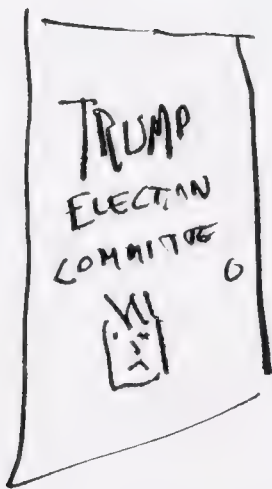 TRUMP
ELECTION
COMMITTEE